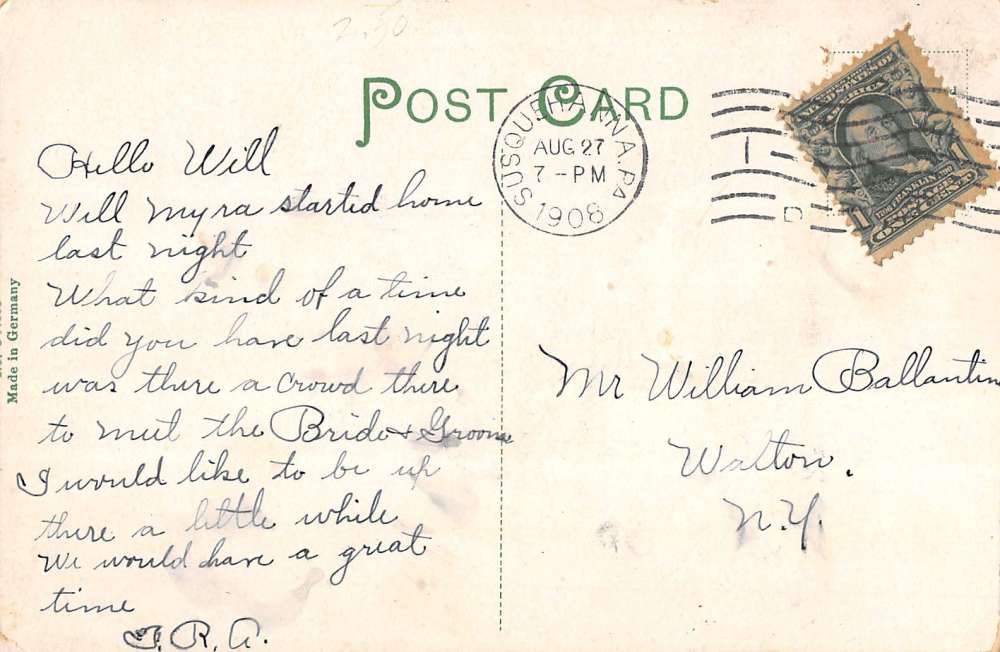 2.50
POST CARD
SUSQUEHANNA, PA.
AUG 27
7 - PM
1908
D
1
1
FRANKLIN
Hello Will
Will Myra started home
last night
What kind of a time
did you have last night
was there a crowd there
to meet the Bride & Groom
I would like to be up
there a little while
We would have a great
time
R. A.
Mr William Ballantin
Walton.
N.Y.
Made in Germany